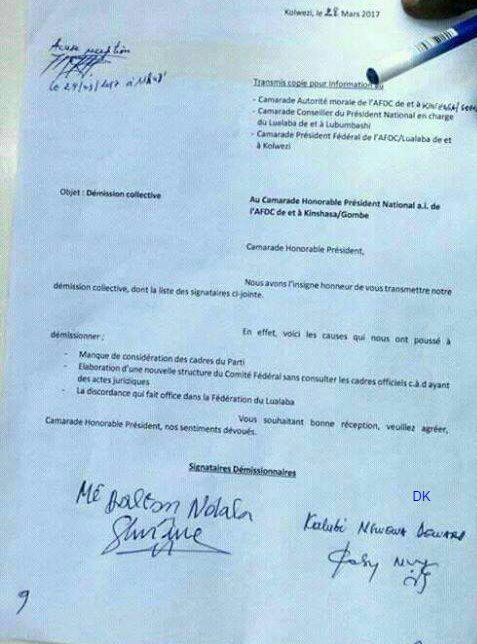 Kolwezi, le 28 Mars 2017
Accusé réception
le 29/03/2017 à
Transmis copie pour Information
- Camarade Autorité morale de l'AFDC de et à KINSHASA/
- Camarade Conseiller du Président National en charge
du Lualaba de et à Lubumbashi
- Camarade Président Fédéral de l'AFDC/Lualaba de et
à Kolwezi
Objet : Démission collective
Au Camarade Honorable Président National a.i. de
l'AFDC de et à Kinshasa/Gombe
Camarade Honorable Président,
Nous avons l'insigne honneur de vous transmettre notre
démission collective, dont la liste des signataires ci-jointe.
En effet, voici les causes qui nous ont poussé à
démissionner ;
- Manque de considération des cadres du Parti
- Elaboration d'une nouvelle structure du Comité Fédéral sans consulter les cadres officiels c.à.d ayant
des actes juridiques
- La discordance qui fait office dans la Fédération du Lualaba
Vous souhaitant bonne réception, veuillez agréer,
Camarade Honorable Président, nos sentiments dévoués.
Signataires Démissionnaires
DK
Me
Kalubi
9